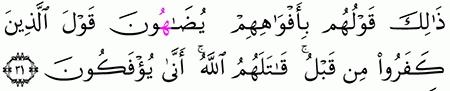 ذَٰلِكَ قَوْلُهُم بِأَفْوَٰهِهِمْ يُضَٰهُونَ قَوْلَ ٱلَّذِينَ
كَفَرُوا۟ مِن قَبْلُ ۚ قَٰتَلَهُمُ ٱللَّهُ ۚ أَنَّىٰ يُؤْفَكُونَ ٣١